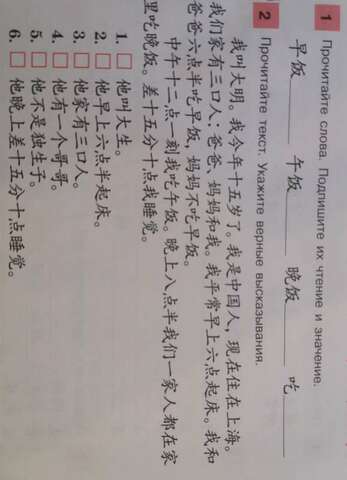 1 Прочитайте слова. Подпишите их чтение и значение.
早饭 午饭 晚饭 吃
2 Прочитайте текст. Укажите верные высказывания.
我叫大明。我今年十五岁了。我是中国人，现在住在上海。
我们家有三口人：爸爸、妈妈和我。我平常早上六点起床。我和
爸爸六点半吃早饭，妈妈不吃早饭。
中午十二点一刻我吃午饭。晚上八点半我们一家人都在家
里吃晚饭。差十五分十点我睡觉。
1. 他叫大生。
2. 他早上六点半起床。
3. 他家有三口人。
4. 他有一个哥哥。
5. 他不是独生子。
6. 他晚上差十五分十点睡觉。